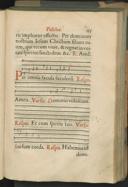 Pascha.
ris implhatur effectu. Per dominum
nostrum Iesum Christum filium tu-
um, qui tecum vivit, & regnat in vni-
tate Spiritus sancti deus &c. R. Amē.
Per omnia sæcula sæculorū. Respō.
Amen. Versic. Dominus vobiscum.
Respō. Et cum spiritu tuo. Versic.
Sursum corda. Respō. Habemus ad
domi-